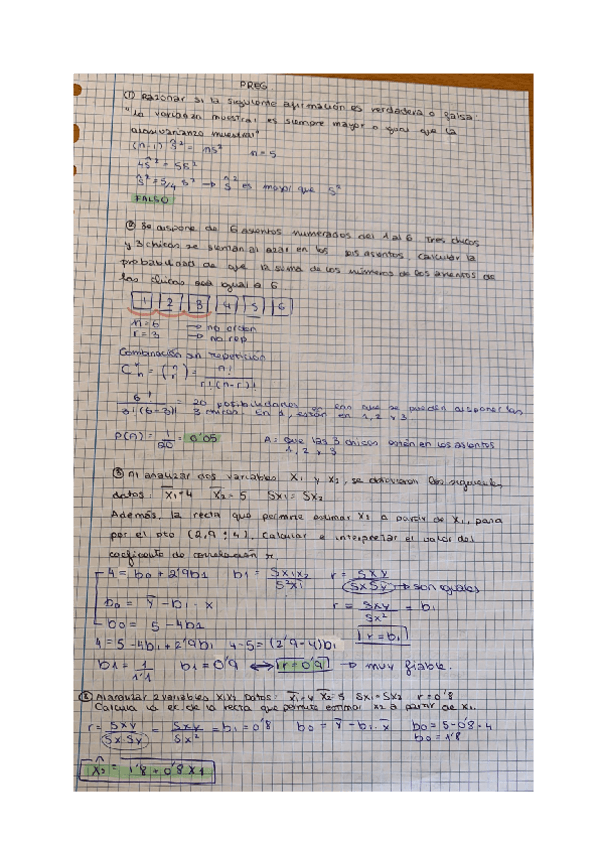 PREG
① Razonar si la siguiente afirmación es verdadera o falsa:
"la varianza muestral es siempre mayor o igual que la
cuasivarianza muestral"
(n-1) ŝ² = ns² n = 5
4ŝ² = 5s²
ŝ² = 5/4 s² → ŝ² es mayor que s²
FALSO
② Se dispone de 6 asientos numerados del 1 al 6. Tres chicos
y 3 chicas se sientan al azar en los seis asientos. Calcular la
probabilidad de que la suma de los números de los asientos de
las chicas sea igual a 6
1 2 3 4 5 6
n = 6 → no orden
r = 3 → no rep.
Combinación sin repetición
C = (n r) = n! / r!(n-r)!
6! / 3!(6-3)! = 20 posibilidades en que se pueden disponer las
3 chicas. En 1, están en 1, 2 y 3
P(A) = 1/20 = 0'05 A: que las 3 chicas estén en los asientos
1, 2 y 3
③ Al analizar dos variables X1 y X2, se obtuvieron los siguientes
datos: X̄1 = 4 X̄2 = 5 Sx1 = Sx2
Además, la recta que permite estimar X2 a partir de X1, pasa
por el pto (2,9 ; 4). Calcular e interpretar el valor del
coeficiente de correlación r.
4 = b0 + 2'9b1 b1 = Sx1x2 / S²x1 r = Sxy / SxSy → son iguales
b0 = Ȳ - b1 · x r = Sxy / Sx² = b1
b0 = 5 - 4b1 r = b1
4 = 5 - 4b1 + 2'9b1 4-5 = (2'9-4)b1
b1 = 1 / 1'1 b1 = 0'9 ↔ r = 0'9 → muy fiable.
Al analizar 2 variables X1X2 Datos: x̄1 = 4 x̄2 = 5 Sx1 = Sx2 r = 0'8
Calcula la ec. de la recta que permite estimar x2 a partir de x1.
r = Sxy / SxSy = Sxy / Sx² = b1 = 0'8 b0 = Ȳ - b1 · x̄ b0 = 5 - 0'8 · 4
b0 = 1'8
X̂2 = 1'8 + 0'8 X1